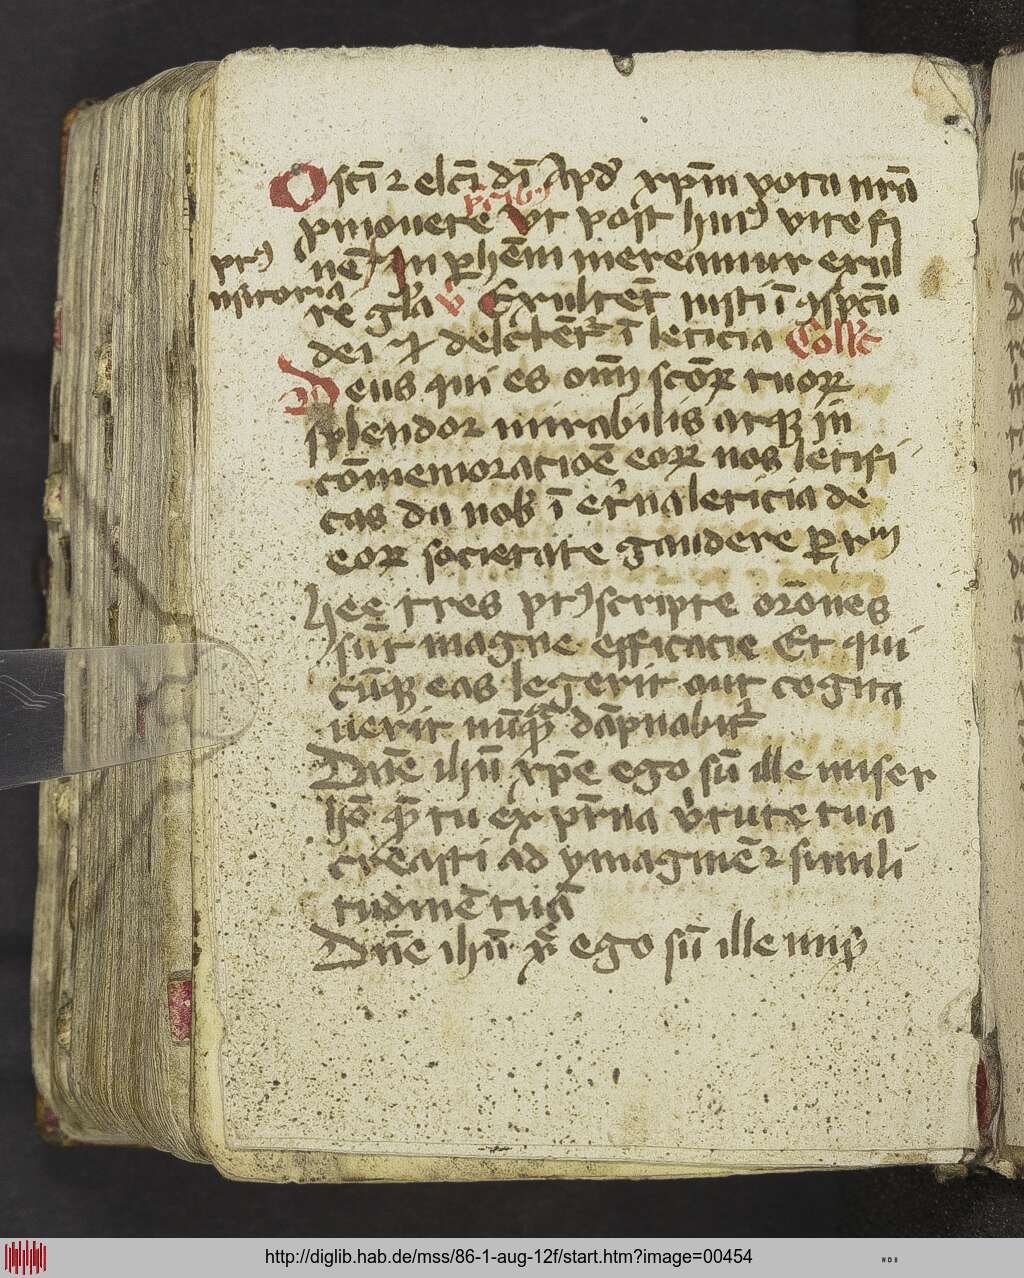 O scī ⁊ elcī dī Apd' xpm̄ vota nr̄a
p̄cibꝰ
pmouete Vt post huiꝰ vite fi
ptꝰ nē In p̄hēm mereamur exul
nsitoria
re gl̄a v Exultēt iusti ī ꝯspc̄u
dei ⁊ delctēt' ī leticia Coll'c
Deus qui es om̄ scōꝝ tuoꝝ
splendor mirabilis atqꝫ in
cōmemoracioē eoꝝ nos letifi
cas da nob' ī et'na leticia de
eoꝝ societate gaudere ꝑ
hee tres p̄scripte orōnes
sūt magne efficacie Et qui
cūqꝫ eas legerit aut cogita
uerit nūqꝫ dāpnabit'
Dn̄e ihū xp̄e ego sū ille miser
hō qꝫ tu ex pr̄na v'tute tua
creasti ad ymaginē ⁊ simili
tudinē tuā
Dn̄e ihū xp̄e ego sū ille
http://diglib.hab.de/mss/86-1-aug-12f/start.htm?image=00454